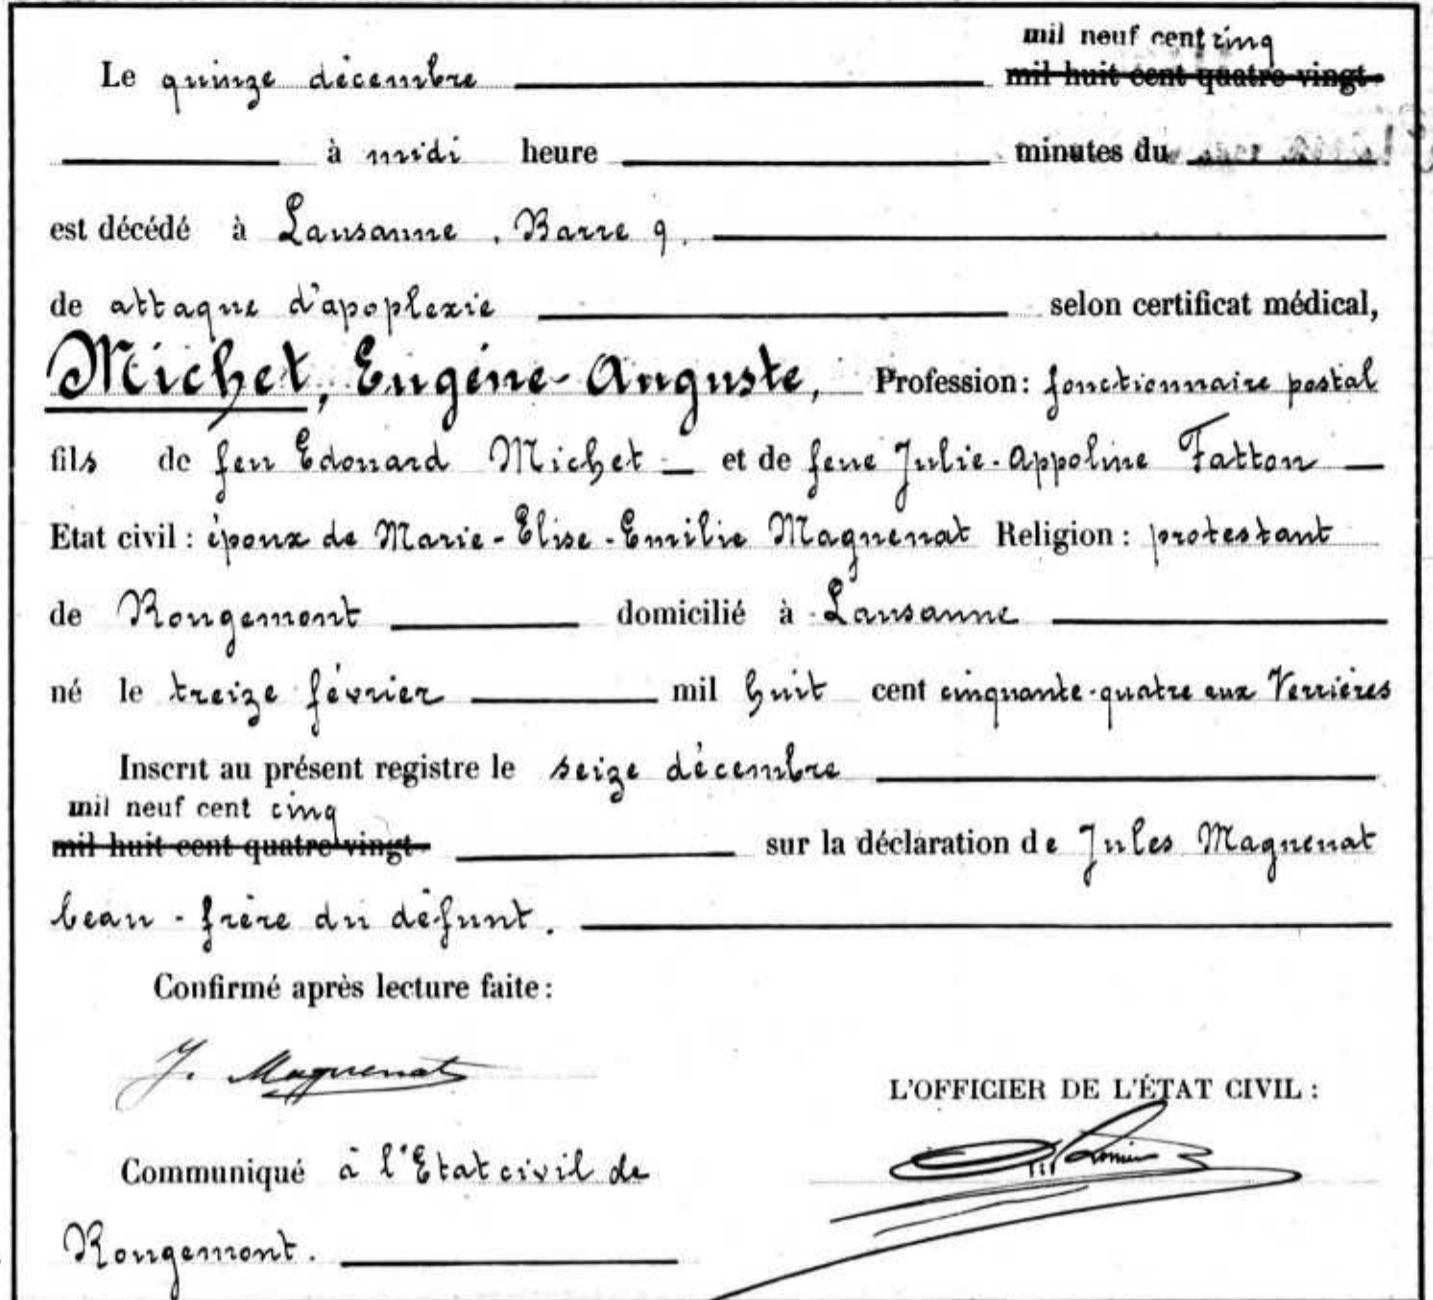 mil neuf cent cinq
Le quinze décembre mil huit cent quatre vingt
à midi heure minutes du
est décédé à Lausanne, Barre 9.
de attaque d'apoplexie selon certificat médical,
Michet, Eugène-Auguste, Profession: fonctionnaire postal
fils de feu Edouard Michet et de feue Julie-Appoline Fatton
Etat civil : époux de Marie-Elise-Emilie Magnenat Religion : protestant
de Rougemont domicilié à Lausanne
né le treize février mil huit cent cinquante-quatre aux Verrières
Inscrit au présent registre le seize décembre
mil neuf cent cinq
mil huit cent quatre vingt sur la déclaration de Jules Magnenat
beau-frère du défunt.
Confirmé après lecture faite :
J. Magnenat
L'OFFICIER DE L'ÉTAT CIVIL :
Communiqué à l'Etat civil de
Rougemont.